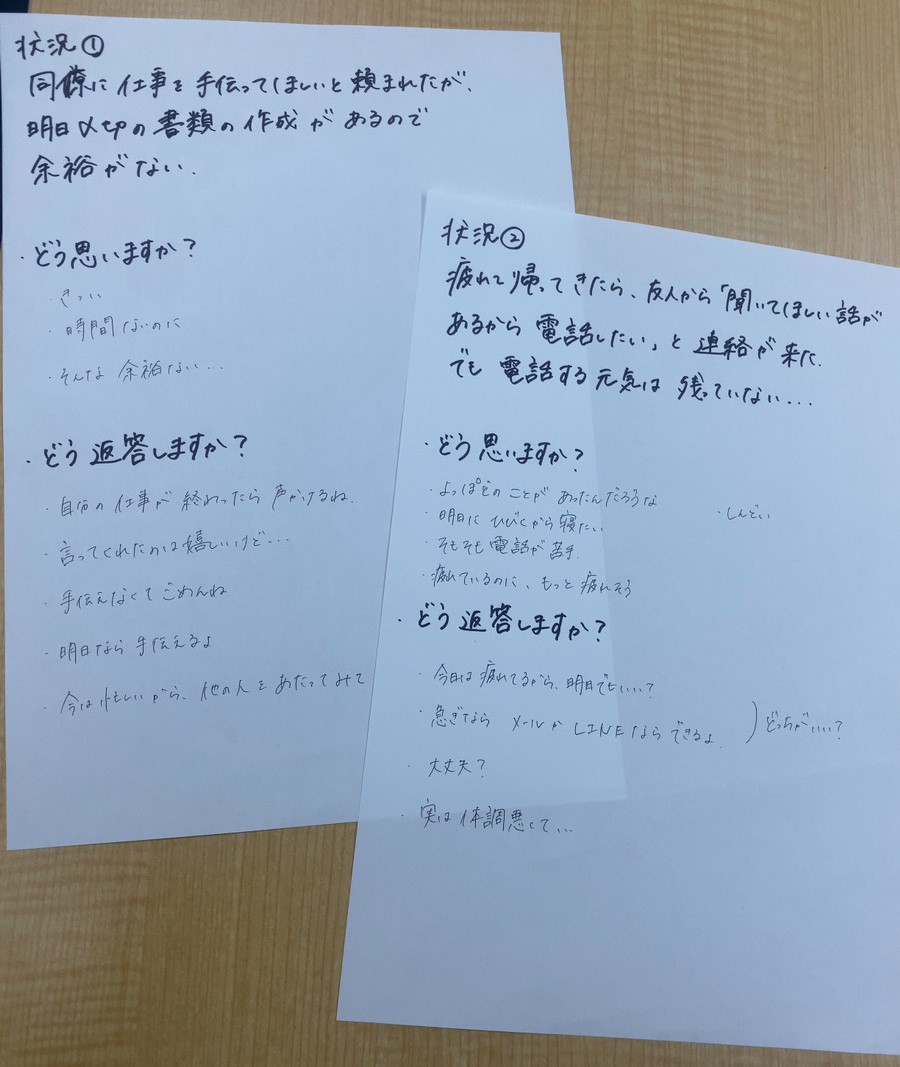 状況①
同僚に仕事を手伝ってほしいと頼まれたが、
明日〆切の書類の作成があるので
余裕がない.
・どう思いますか?
・きつい
・時間ないのに
・そんな余裕ない...
・どう返答しますか?
・自分の仕事が終わったら声かけるね.
・言ってくれたのは嬉しいけど...
・手伝えなくてごめんね
・明日なら手伝えるよ
・今は忙しいから、他の人をあたってみて
状況②
疲れて帰ってきたら、友人から「聞いてほしい話が
あるから電話したい」と連絡が来た.
でも電話する元気は残っていない...
・どう思いますか?
・よっぽどのことがあったんだろうな
・しんどい
・明日にひびくから寝たい
・そもそも電話が苦手.
・疲れているのに、もっと疲れそう
・どう返答しますか?
・今日は疲れてるから、明日でもいい?
・急ぎならメールかLINEならできるよ.
)どっちがいい?
・大丈夫?
・実は体調悪くて...